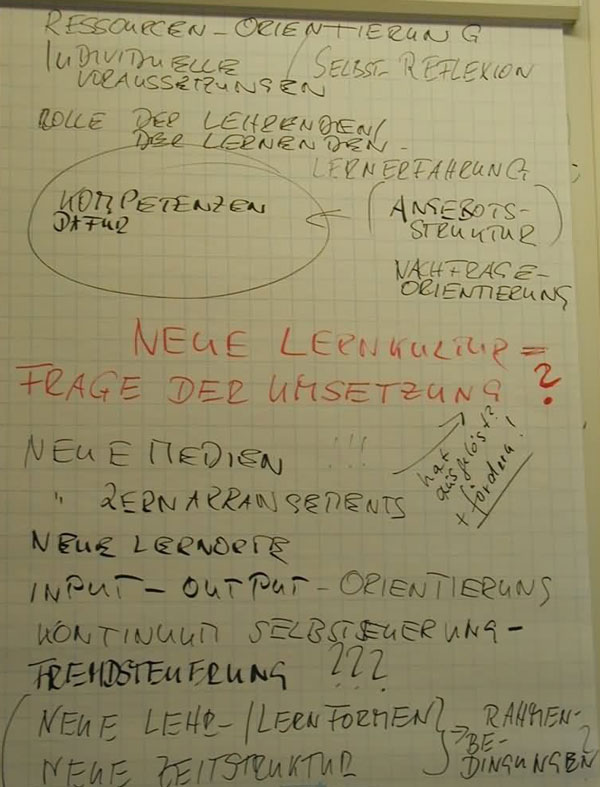 RESSOURCEN-ORIENTIERUNG
INDIVIDUELLE
VORAUSSETZUNGEN
/ SELBST-REFLEXION
ROLLE DER LEHRENDEN/
DER LERNENDEN-
LERNERFAHRUNG
KOMPETENZEN
DAFÜR
← (ANGEBOTS-
STRUKTUR)
NACHFRAGE-
ORIENTIERUNG
NEUE LERNKULTUR =
FRAGE DER UMSETZUNG ?
NEUE MEDIEN !!!
" LERNARRANGEMENTS
hat
ausgelöst?
+ fördern!
NEUE LERNORTE
INPUT-OUTPUT-ORIENTIERUNG
KONTINUUM SELBSTSEUERUNG-
FREMDSTEUERUNG ???
(NEUE LEHR-/LERNFORMEN
NEUE ZEITSTRUKTUR
} ⇒ RAHMEN-
BE-
DINGUNGEN